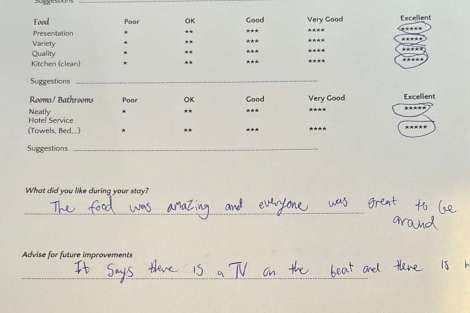 Suggestions
Food Poor OK Good Very Good Excellent
Presentation * ** *** **** *****
Variety * ** *** **** *****
Quality * ** *** **** *****
Kitchen (clean) * ** *** **** *****
Suggestions
Rooms/ Bathrooms Poor OK Good Very Good Excellent
Neatly * ** *** **** *****
Hotel Service
(Towels, Bed,...) * ** *** **** *****
Suggestions
What did you like during your stay?
The food was amazing and everyone was great to be
around
Advise for future improvements
It says there is a TV on the boat and there is